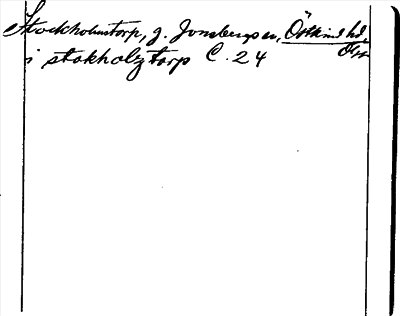 Stockholmstorp, g. Jonsbergs sn, Östkinds hd,
Ög.
i stokholz torp C. 24